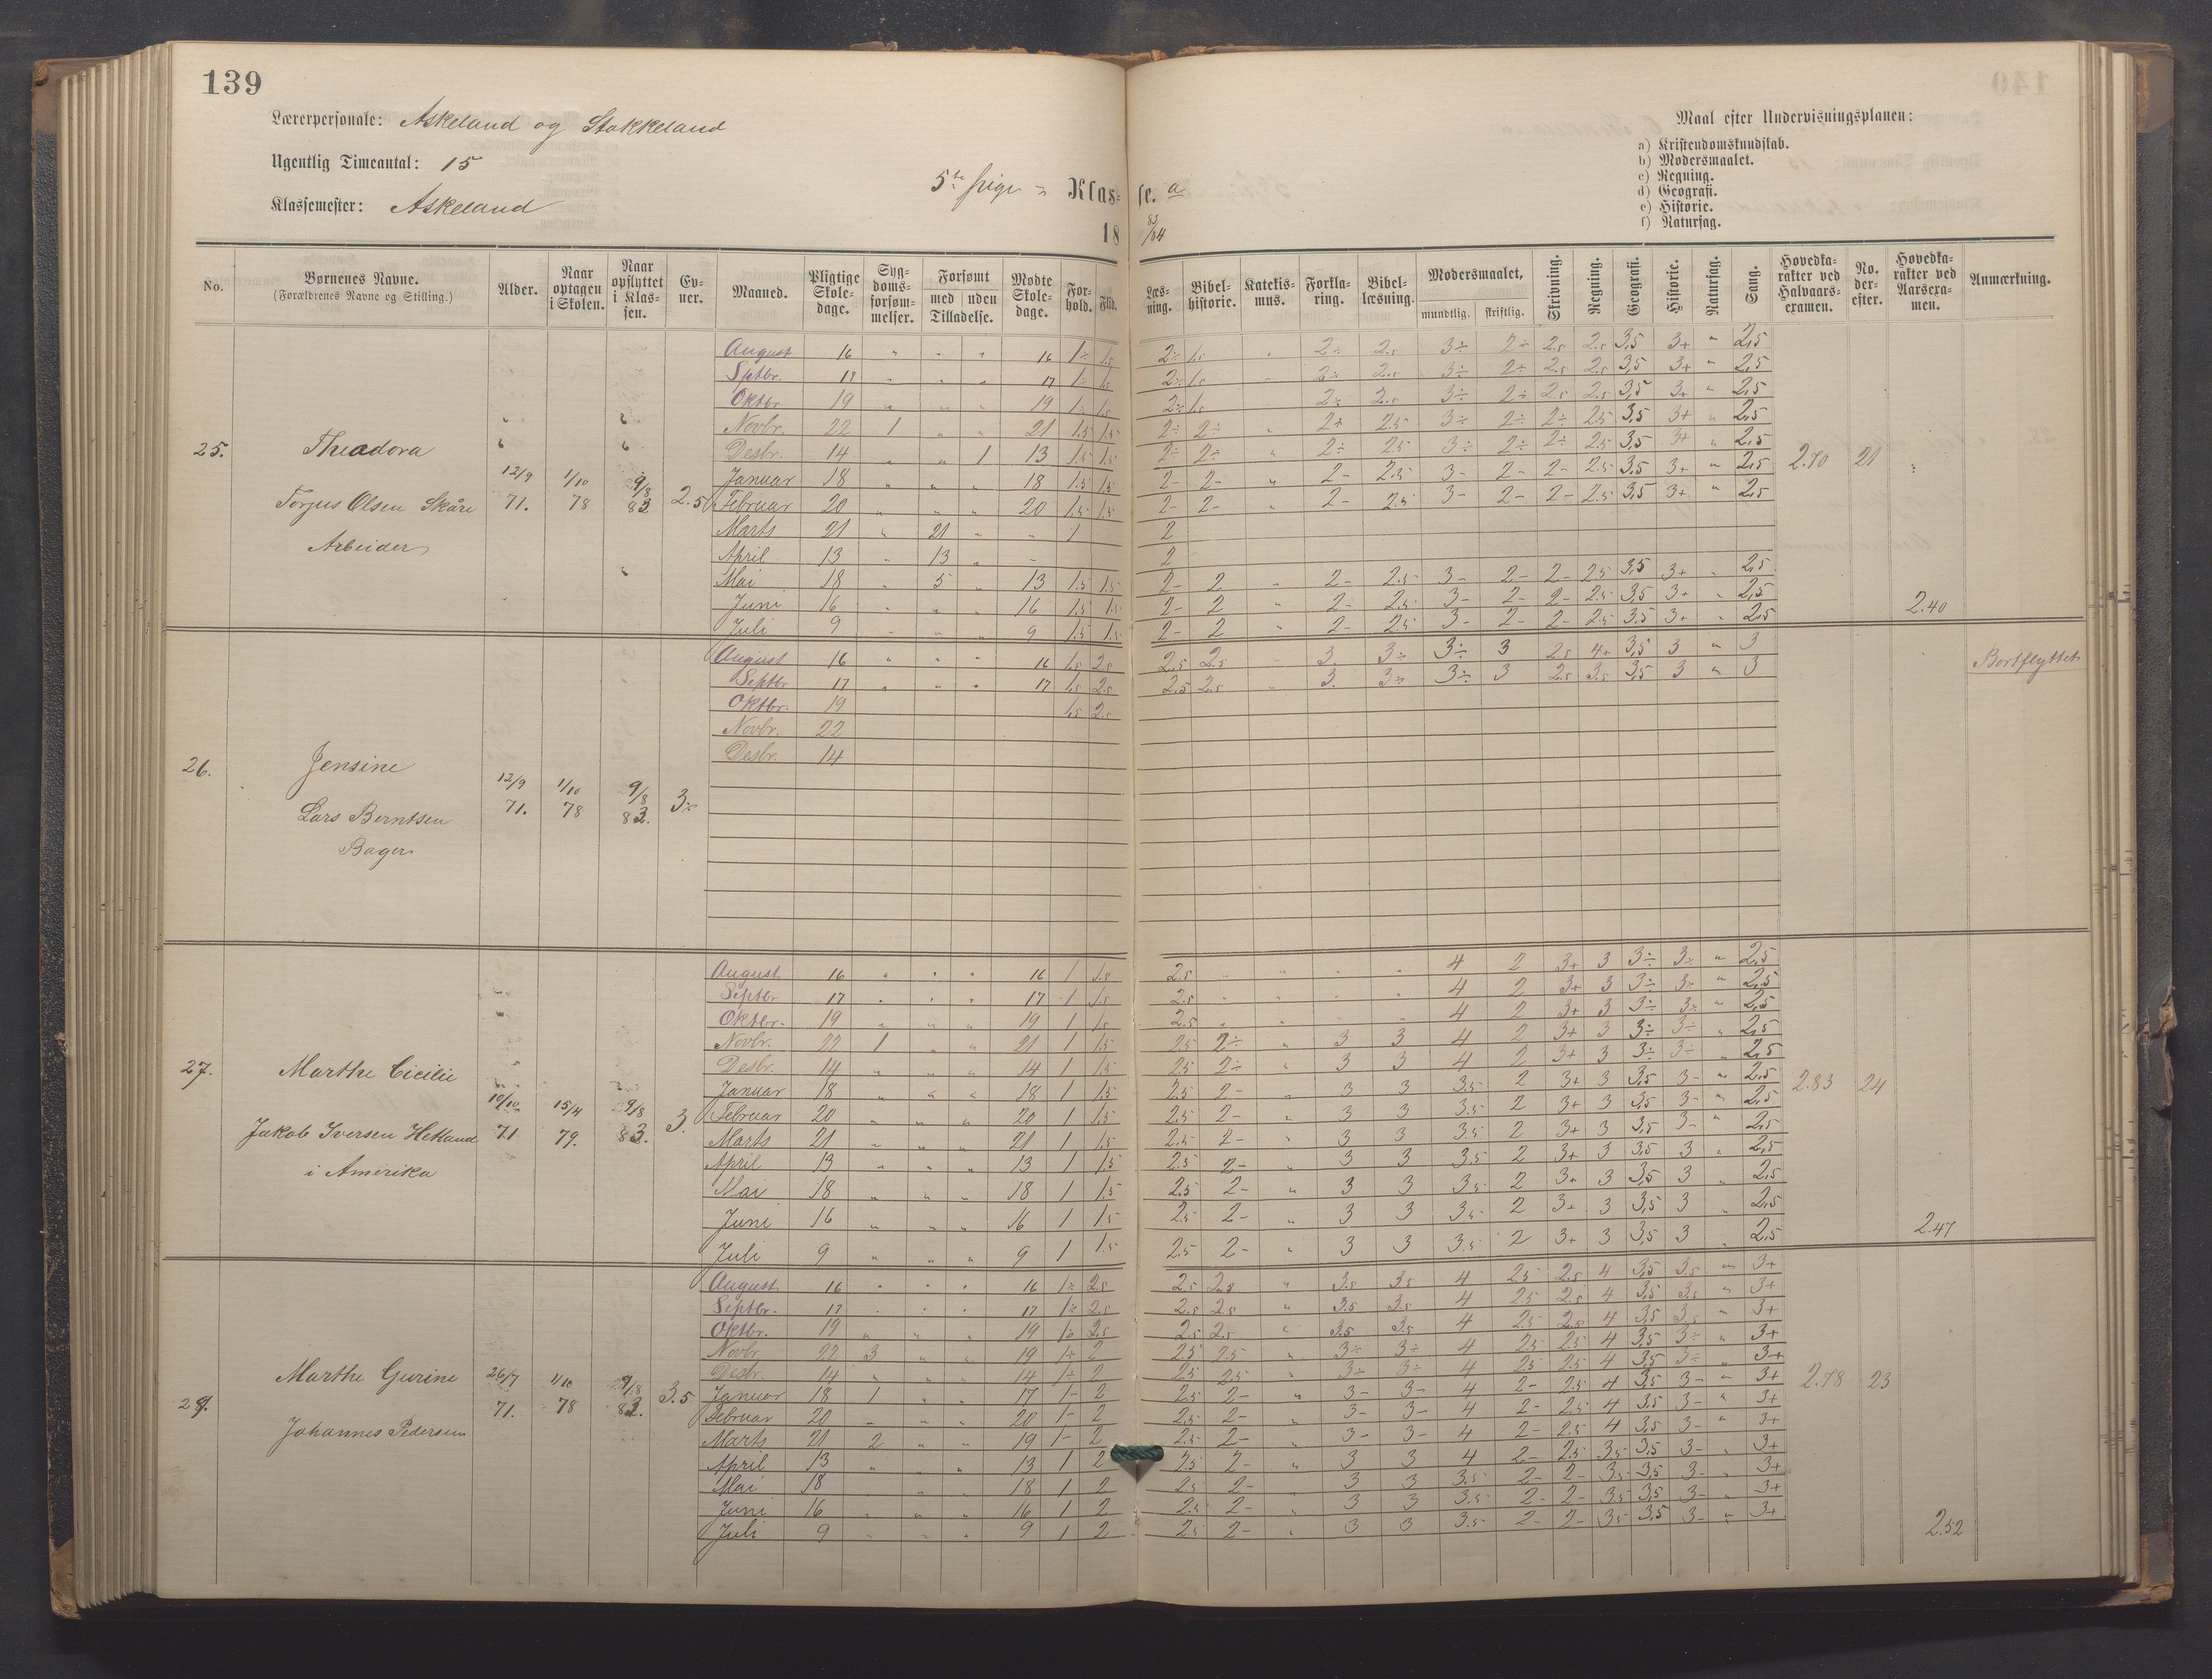 139
Lærerpersonale: Askeland og Stokkeland
Ugentlig Timeantal: 15
Klassemester: Askeland
5te pige = Klasse. a
18 83/84
Maal efter Undervisningsplanen:
a) Kristendomskundskab.
b) Modersmaalet.
c) Regning.
d) Geografi.
e) Historie.
f) Naturfag.
No. Børnenes Navne. (Forældrenes Navne og Stilling.) Alder. Naar optagen i Skolen. Naar opflyttet i Klassen. Evner. Maaned. Pligtige Skoledage. Sygdomsforsømmelser. Forsømt med uden Tilladelse. Mødte Skoledage. Forhold. Flid. Læsning. Bibelhistorie. Katekismus. Forklaring. Bibellæsning. Modersmaalet, mundtlig. skriftlig. Skrivning. Regning. Geografi. Historie. Naturfag. Sang. Hovedkarakter ved Halvaarsexamen. No. derefter. Hovedkarakter ved Aarsexamen. Anmærkning.
25. Theodora
Torjus Olsen Skåre
Arbeider
12/9 71. 1/10 78 9/8 83 2.5
August 16 " " " 16 1÷ 1.5 2÷ 1.5 " 2÷ 2.5 3÷ 2÷ 2.5 2.5 3,5 3+ " 2,5
Sptbr. 17 " " " 17 1÷ 1.5 2÷ 1.5 " 2÷ 2.5 3÷ 2÷ 2.5 2.5 3,5 3+ " 2,5
Oktbr 19 " " " 19 1÷ 1.5 2÷ 1.5 2÷ 2.5 3÷ 2÷ 2.5 2.5 3,5 3+ " 2,5
Novbr. 22 1 " " 21 1.5 1.5 2÷ 2÷ " 2+ 2.5 3÷ 2÷ 2÷ 2.5 3,5 3+ " 2,5
Desbr. 14 " " 1 13 1.5 1.5 2÷ 2÷ " 2÷ 2.5 3÷ 2÷ 2÷ 2.5 3,5 3+ " 2,5
Januar 18 " " " 18 1.5 1.5 2- 2- " 2- 2.5 3- 2- 2- 2.5 3,5 3+ " 2,5 2.70 21
Februar 20 " " " 20 1.5 1.5 2- 2- 2- 2.5 3- 2- 2- 2.5 3,5 3+ " 2,5
Marts 21 " 21 " " 1 2
April 13 " 13 " - 2
Mai 18 " 5 " 13 1.5 1.5 2- 2 " 2- 2.5 3- 2- 2- 2.5 3,5 3+ " 2,5
Juni 16 " " " 16 1.5 1.5 2- 2 " 2- 2.5 3- 2- 2- 2.5 3,5 3+ " 2,5
Juli 9 - " " 9 1.5 1.5 2- 2 " 2- 2.5 3- 2- 2- 2.5 3.5 3+ " 2,5 2.40
26. Jensine
Lars Berntsen
Bager
12/9 71. 1/10 78 9/8 83. 3÷
August 16 " " " 16 1.5 2.5 2.5 2.5 3. 3÷ 3÷ 3 2.5 4+ 3,5 3 " 3
Septbr 17 " " " 17 1.5 2.5 2.5 2.5 3. 3÷ 3÷ 3 2.5 3.5 3,5 3 " 3
Oktbr. 19 1.5 2.5
Novbr. 22
Desbr. 14
Bortflyttet
27. Marthe Cicilie
Jakob Iversen Hetland
i Amerika
10/10 71 15/4 79. 9/8 83. 3.
August 16 " " " 16 1 1.5 2.5 " " " " 4 2 3+ 3 3÷ 3÷ " 2,5
Septbr 17 " " " 17 1 1.5 2.5 " " " " 4 2 3+ 3 3÷ 3÷ " 2,5
Oktbr. 19 " " " 19 1 1.5 2.5 " " " " 4 2 3+ 3 3÷ 3÷ " 2,5
Novbr. 22 1 " " 21 1 1.5 2.5 2÷ " 3 3 4 2 3+ 3 3÷ 3÷ " 2,5
Desbr. 14 " " " 14 1 1.5 2.5 2÷ " 3 3 4 2 3+ 3 3÷ 3÷ " 2,5
Januar 18 " " " 18 1 1.5 2.5 2- " 3 3 3.5 2 3+ 3 3,5 3- " 2,5 2.83 24
Februar 20 " " " 20 1 1.5 2.5 2- " 3 3 3.5 2 3+ 3 3,5 3- " 2,5
Marts 21 " " " 21 1 1.5 2.5 2- " 3 3 3.5 2 3+ 3 3,5 3- 2,5
April 13 " " " 13 1 1.5 2.5 2- " 3 3 3.5 2 3+ 3 3,5 3 " 2,5
Mai 18 " " " 18 1 1.5 2.5 2- " 3 3 3.5 2 3+ 3 3,5 3 " 2,5
Juni 16 " " " 16 1 1.5 2.5 2- " 3 3 3.5 2 3+ 3 3,5 3 " 2,5
Juli 9 " " " 9 1 1.5 2.5 2- " 3 3 3.5 2 3+ 3 3,5 3 " 2,5 2.47
Marthe Gurine
Johannes Pedersen
26/7 71. 1/10 78 9/8 83. 3.5
August 16 " " " 16 1÷ 2.5 2.5 2.5 " 3.5 3.5 4 2.5 2.5 4 3,5 3.5 " 3+
Septbr. 17 " " " 17 1÷ 2.5 2.5 2.5 " 3.5 3.5 4 2.5 2.5 4 3,5 3.5 " 3+
Oktbr. 19 " " " 19 1÷ 2.5 2.5 2.5 " 3.5 3.5 4 2.5 2.5 4 3,5 3.5 " 3+
Novbr. 22 3 " " 19 1÷ 2 2.5 2.5 " 3÷ 3÷ 4 2.5 2.5 4 3,5 3÷ " 3+
Desbr. 14 " " " 14 1÷ 2 2.5 2.5 " 3÷ 3÷ 4 2.5 2.5 4 3,5 3÷ " 3+
Januar 18 1 " " 17 1- 2 2.5 2- " 3- 3- 4 2- 2.5 4 3,5 3- " 3+ 2.78 23
Februar 20 " " " 20 1- 2 2.5 2- 3- 3- 4 2- 2.5 4 3,5 3- " 3+
Marts 21 2 " " 19 1- 2 2.5 2- " 3- 3- 4 2- 2.5 4 3,5 3- " 3+
April 13 " " " 13 1 2 2.5 2- " 3 3 4 2- 2.5 3.5 3,5 3- " 3+
Mai 18 " " " 18 1 2 2.5 2- " 3 3 3.5 2- 2- 3.5 3,5 3- " 3+
Juni 16 " " " 16 1 2 2.5 2- " 3 3 3.5 2- 2- 3.5 3,5 3- " 3+
Juli 9 " " " 9 1 2 2.5 2- " 3 3 3.5 2- 2- 3.5 3,5 3- " 3+ 2.52